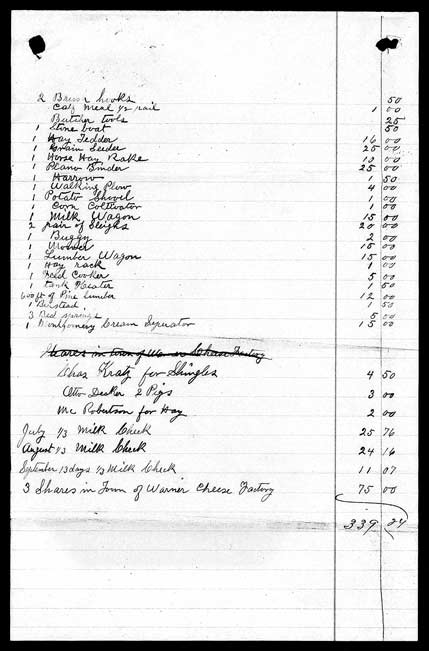 2 Brush hooks 50
Calf Meal 1/2 pail 1 00
Butcher tools 25
1 Stone boat 50
1 Hay Tedder 16 00
1 Grain Seeder 25 00
1 Horse Hay Rake 10 00
1 Plano Binder 25 00
1 Harrow 1 50
1 Walking Plow 4 00
1 Potato Shovel 1 00
1 Corn Coltivator 1 00
1 Milk Wagon 15 00
2 pair of Sleighs 20 00
1 Buggy 2 00
1 Mower 15 00
1 Lumber Wagon 15 00
1 Hay rack 1 00
1 Feed Cooker 5 00
1 Tank Heater 1 50
600 ft of Pine Lumber 12 00
1 Bedstead 1 50
3 Bed springs 5 00
1 Montgomery Cream Seperator 15 00
Shares in Town of Warner Cheese Factory
Chas Kratz for Shingles 4 50
Otto Decker 2 Pigs 3 00
Mc Robertson for Hay 2 00
July 1/3 Milk Check 25 76
August 1/3 Milk Check 24 16
September 13 days 1/3 Milk Check 11 07
3 Shares in Town of Warner Cheese Factory 75 00
339 24